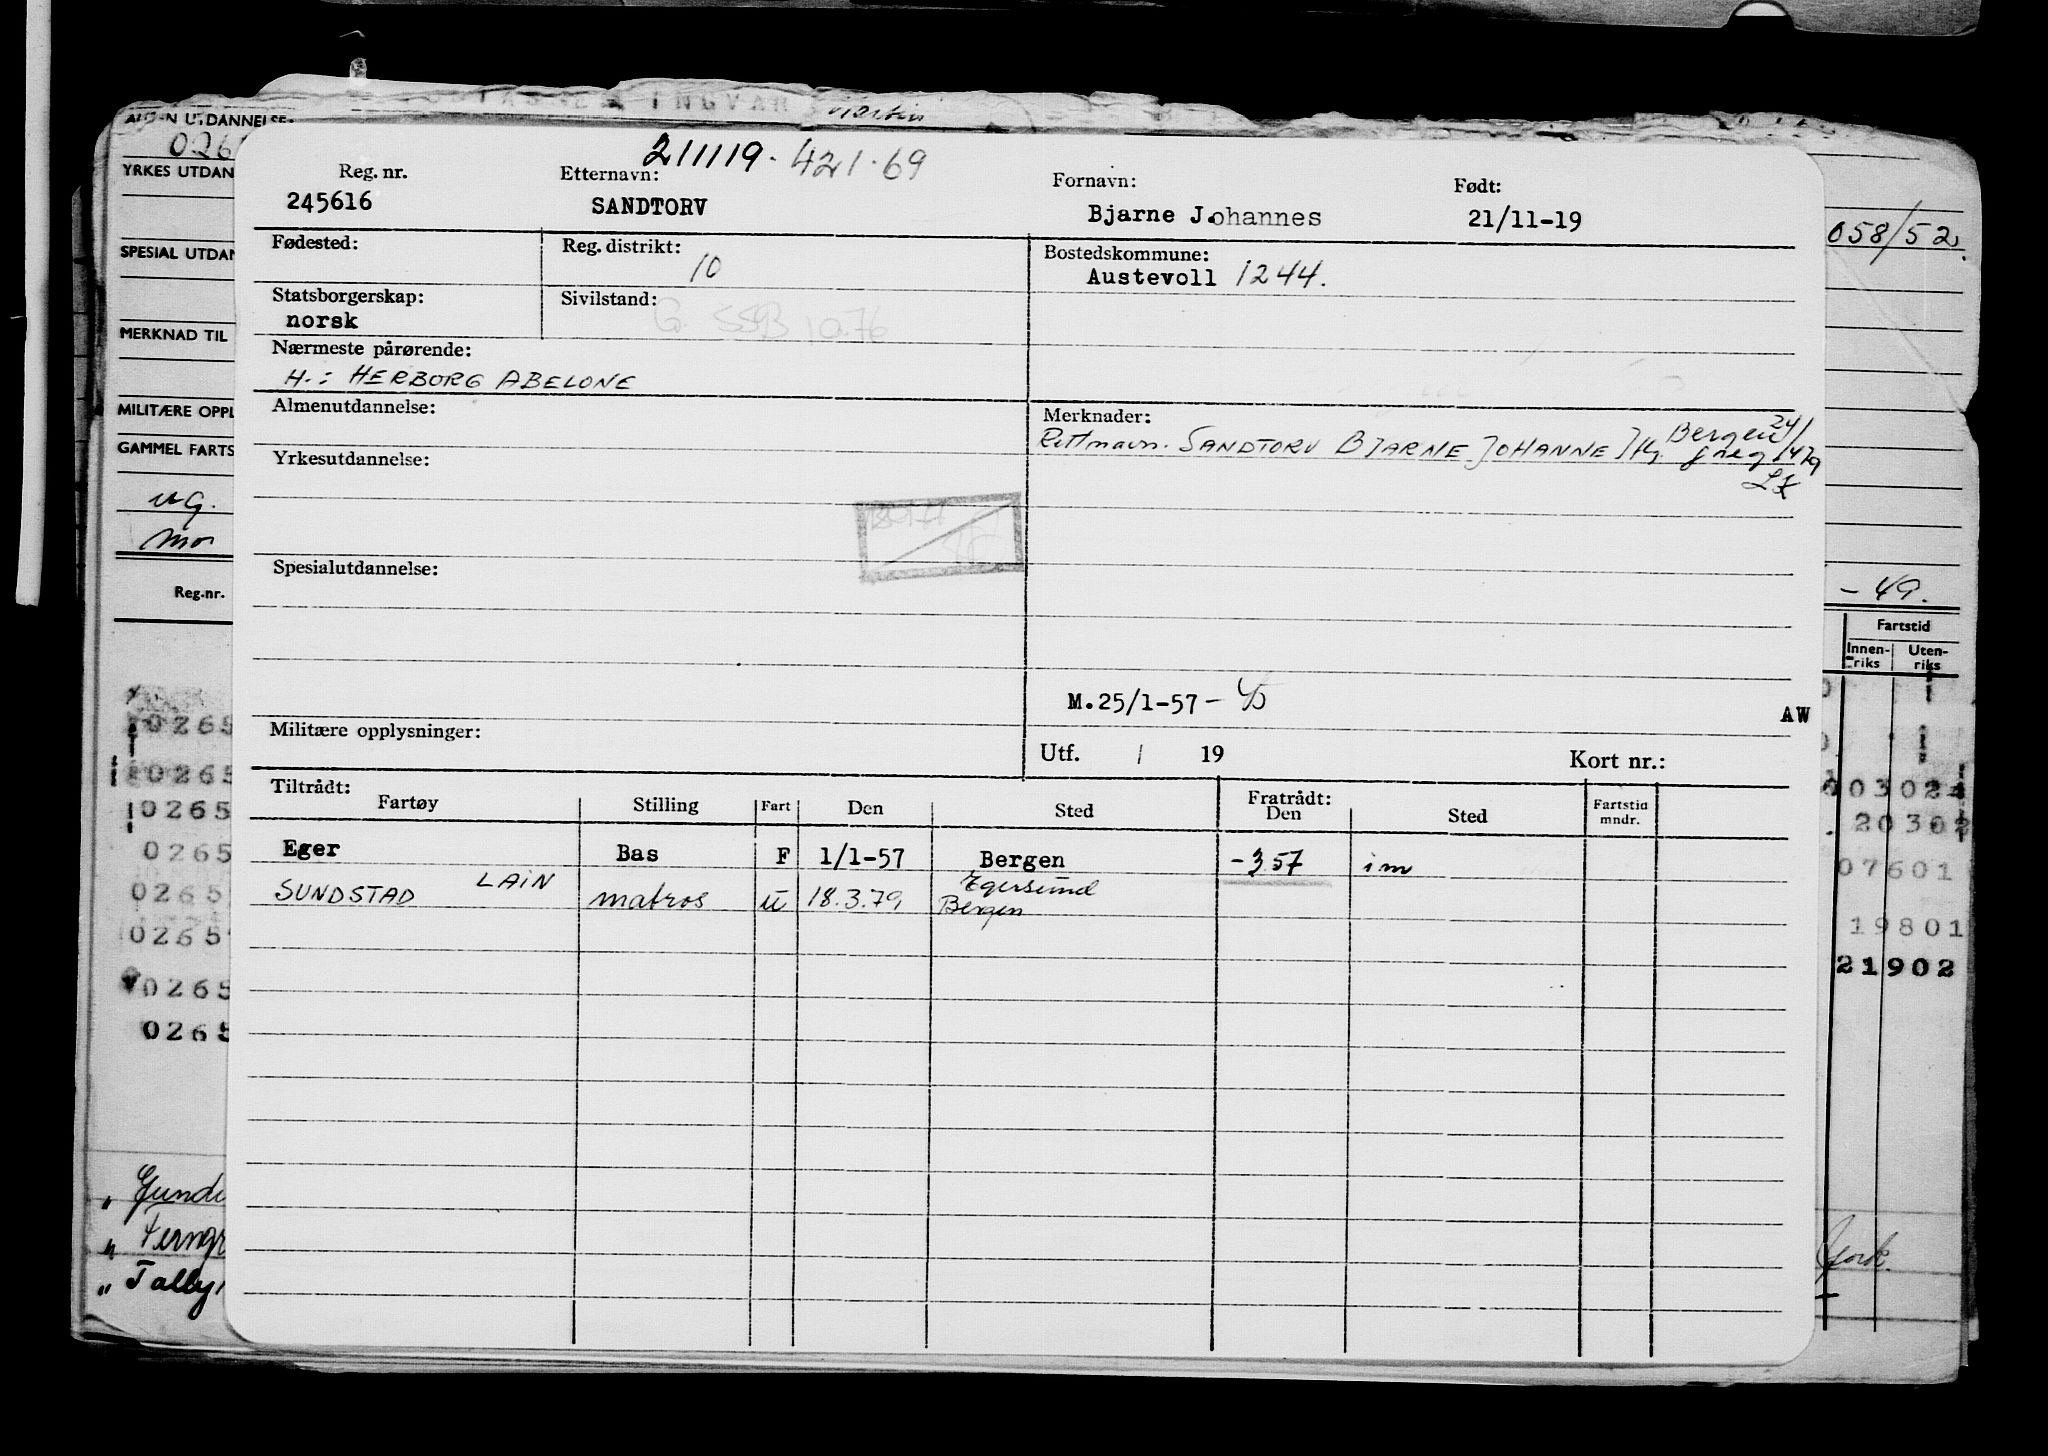 INGVAR Martin
ALMEN UTDANNELSE:
YRKES UTDAN
SPESIAL UTDAN
MERKNAD TIL
MILITÆRE OPPL
GAMMEL FARTS
ug.
Reg.nr.
058/52
- 49.
Fartstid
Innen-riks Uten-riks
211119. 421.69
Reg. nr. Etternavn: Fornavn: Født:
245616 SANDTORV Bjarne Johannes 21/11-19
Fødested: Reg. distrikt: Bostedskommune:
10 Austevoll 1244.
Statsborgerskap: Sivilstand:
norsk G. SSB 10.76
Nærmeste pårørende:
H.: HERBORG ABELONE
Almenutdannelse: Merknader:
Rettnavn. SANDTORV BJARNE JOHANNE Bergen 24/
Yrkesutdannelse:
Spesialutdannelse:
M.25/1-57-
AW
Militære opplysninger: Utf. / 19 Kort nr.:
Tiltrådt: Fratrådt:
Fartøy Stilling Fart Den Sted Den Sted Fartstid mndr.
Eger Bas F 1/1-57 Bergen -357 im
SUNDSTAD LAIN matros u 18.3.79 Egersund Bergen
0265
0265
0265
0265
0265
0265
0265
0265
03024
20302
07601
19801
21902
" Tally
York.